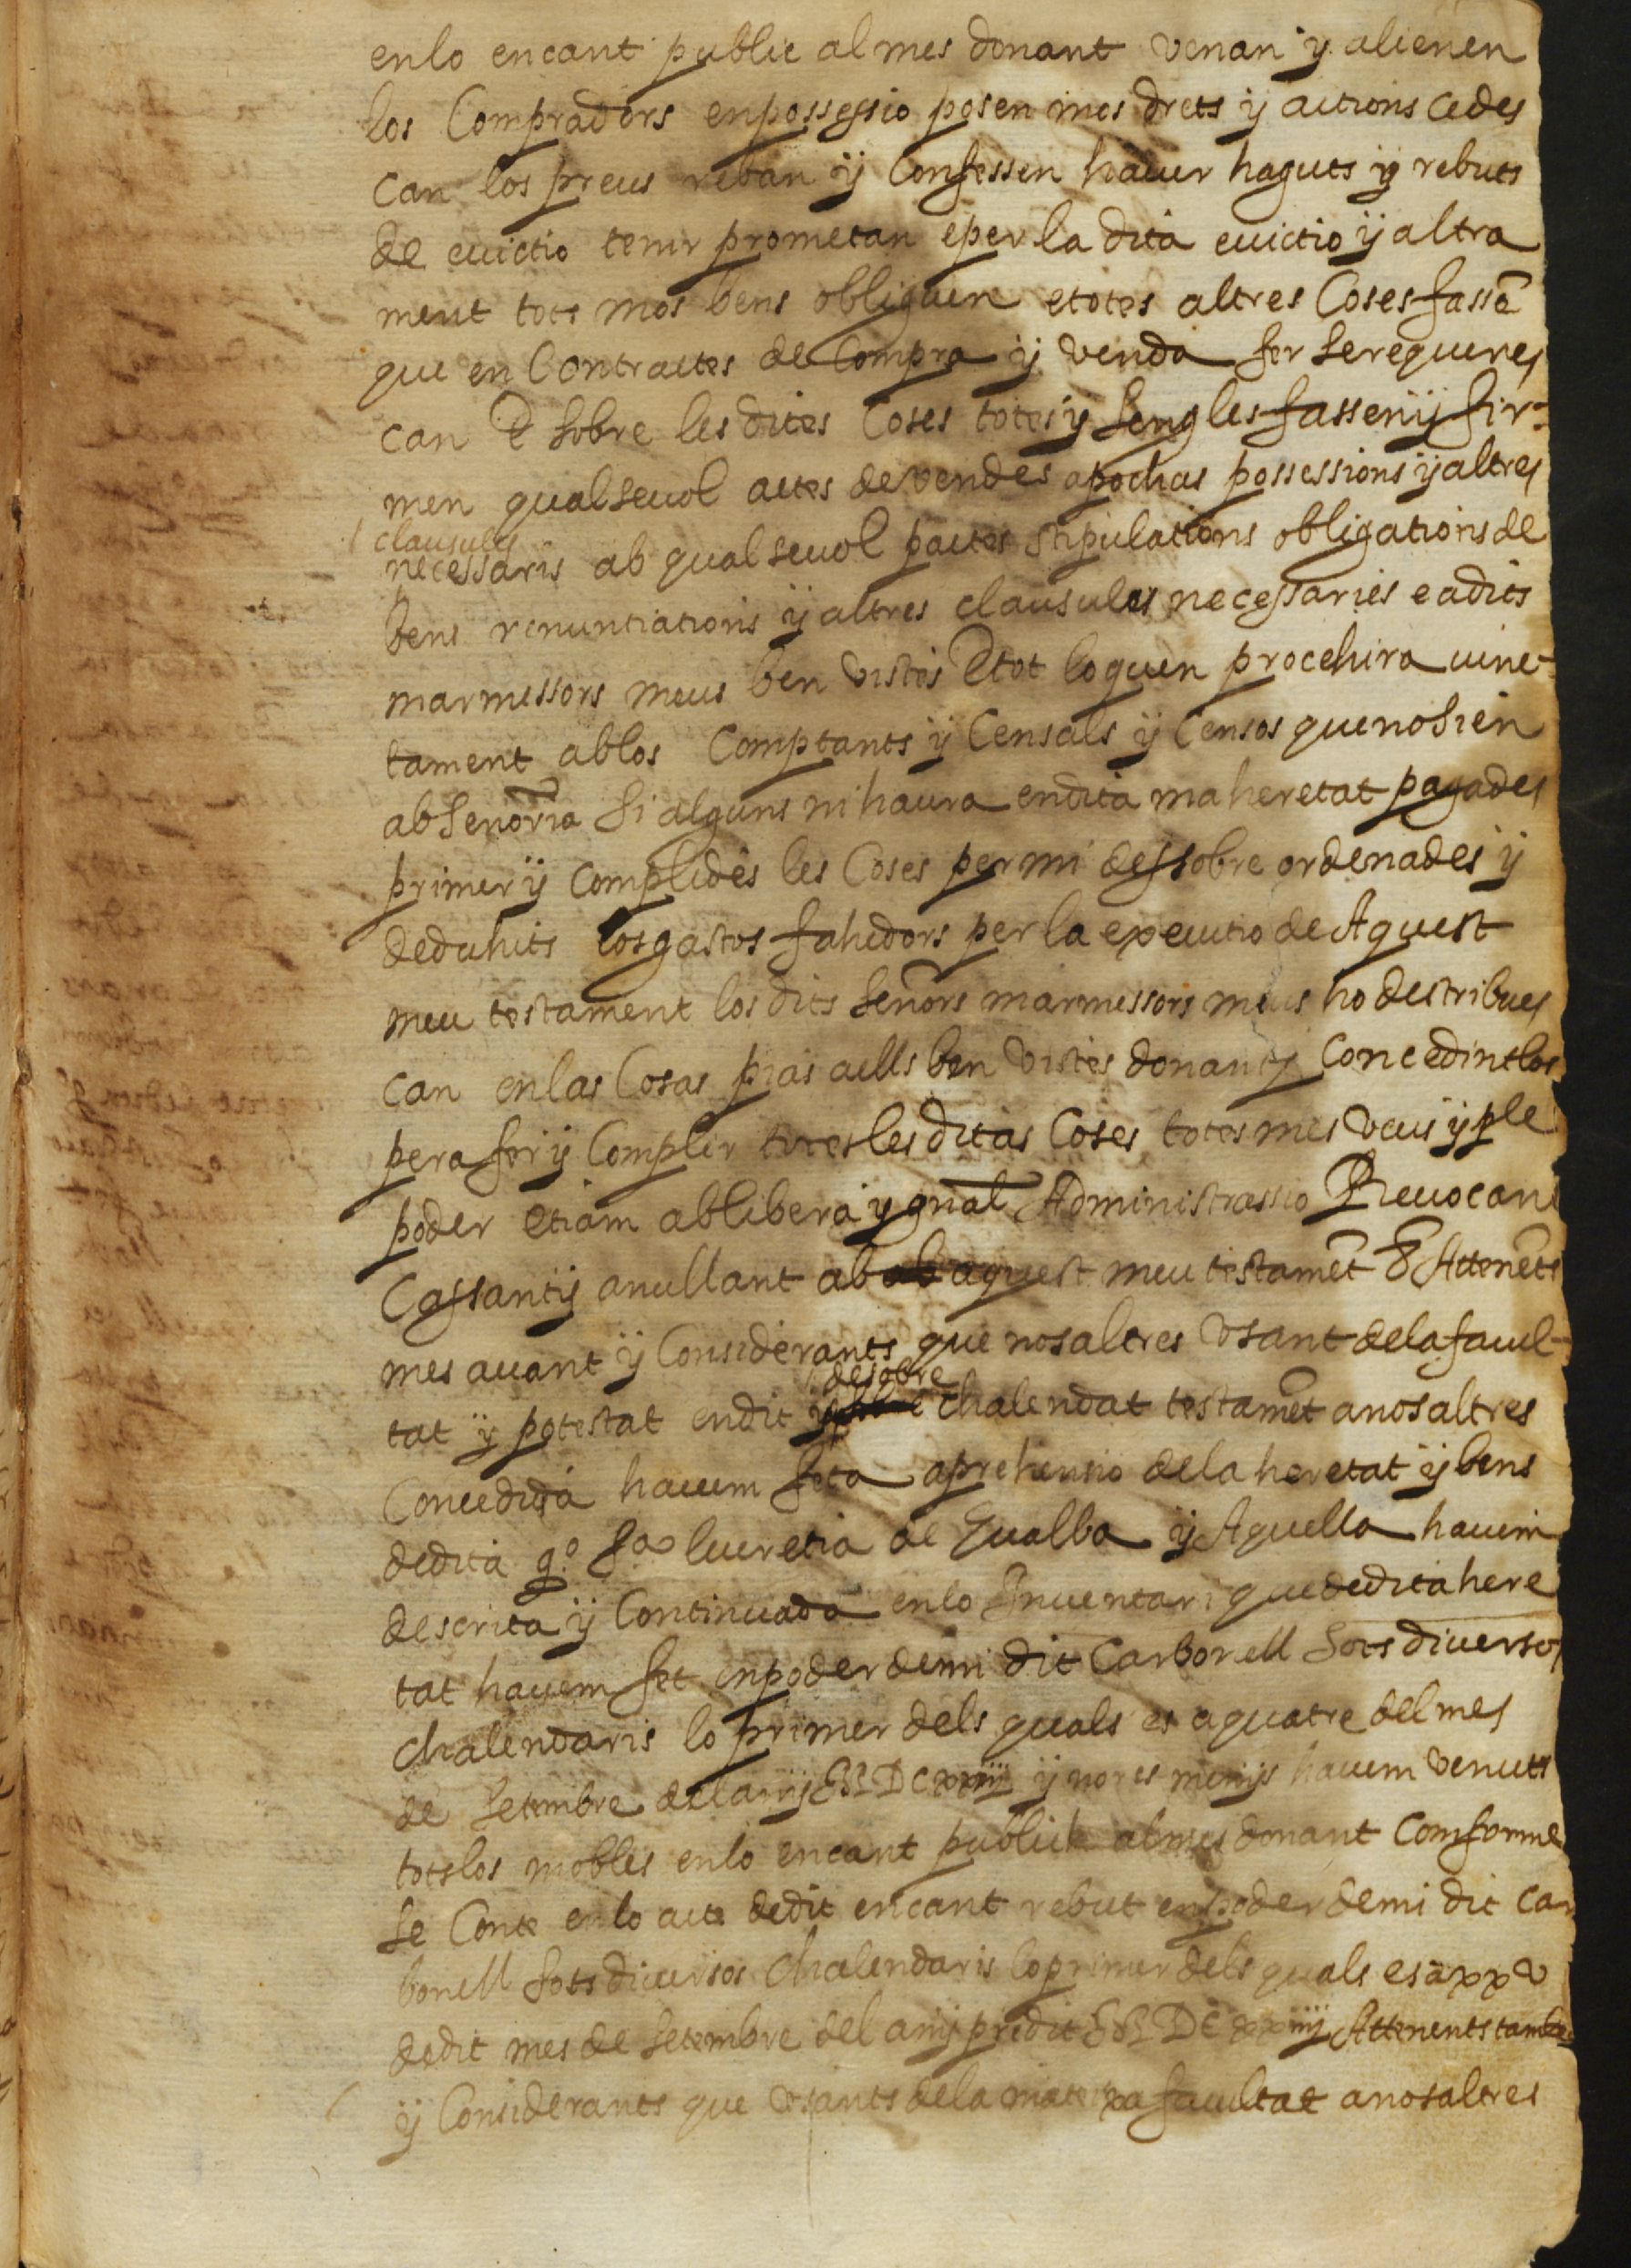 enlo encant public al mes donant venan y alienen
los Compradors enpossessio posen mos drets y actions cedes
can los preus reban y Confessen hauer haguts y rebuts
de euictio tenir prometan e per la dita euictio y altra
ment tots mos bens obliguen e totes altres Coses fassē
que en Contractes de Compra y venda fer se requeres
can E sobre les dites Coses totes y sengles fassen y fir=
men qualseuol actes de vendes apochas possessions y altres
clausules
necessaris ab qualseuol pactes stipulations obligations de
bens renuntiations y altres clausules necessaries e a dits
marmessors meus ben vistes E tot lo quen procehira uinc-
tament ab los Comptants y Censals y Censos que no sien
ab Senoria si alguns ni haura en dita ma heretat pagades
primer y complides les Coses per mi dessobre ordenades y
deduhits los gastos fahedors per la executio de Aquest
meu testament los dits señors marmessors meus ho destribues
can en las Cosas pias a ells ben vistes donant y Concedintlos
pera fer y Complir totes les ditas Coses totes mes veus y ple
poder etiam ab libera y gñal Administrassio Reuocant
Cassant y anullant ab ab aquest meu testamēt E Attenēts
mes auant y Considerants que nosaltres vsant de la facul-
tat y potestat en dit
desobre
chalendat testamēt a nosaltres
Concedida hauem feta aprehensio de la heretat y bens
de dita qº Sª lucretia de Gualba y Aquella hauem
descrita y Continuada en lo Inuentari que de dita here
tat hauem fet en poder de mi dit Carbonell sots diuersos
chalendaris lo primer dels quals es a quatre del mes
de Setembre del any MDCxxiiij y no res menys hauem venuts
tots los mobles en lo encant publich al mes donant Comforme
se Conte en lo acte de dit encant rebut en poder de mi dit Car
bonell sots diuersos Chalendaris lo primer dels quals es a xxv
de dit mes de Setembre del any predit MDCxxiiij Attenents tambe
y Considerants que vsants de la mateixa facultat a nosaltres